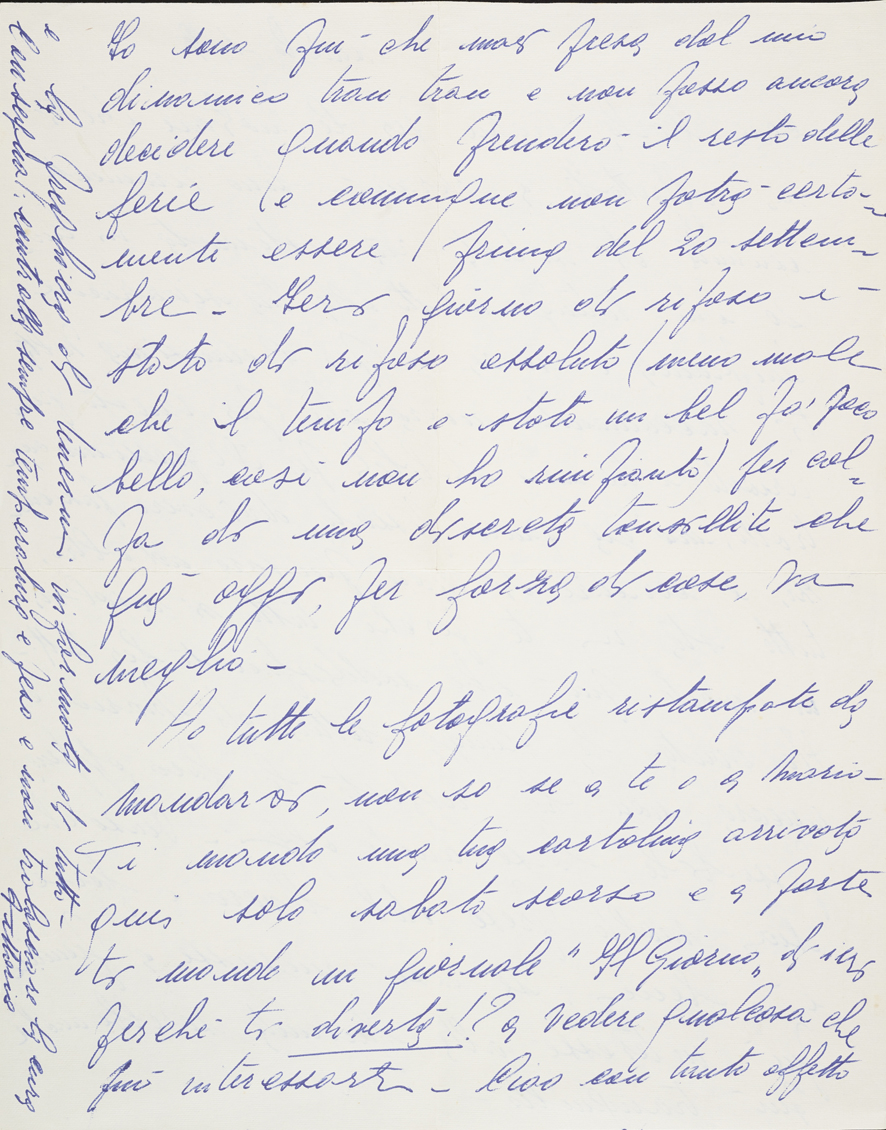 Io sono più che mai presa dal mio
dinamico tran tran e non posso ancora
decidere quando prenderò il resto delle
ferie e comunque non potrà certa-
mente essere prima del 20 settem-
bre - Ieri giorno di riposo è
stato di riposo assoluto (meno male
che il tempo è stato un bel po' poco
bello, così non ho rimpianti) per col-
pa di una discreta tonsillite che
già oggi, per forza di cose, va
meglio -
Ho tutte le fotografie ristampate da
mandarvi, non so se a te o a Mario -
Ti mando una tua cartolina arrivata
qui solo sabato scorso e a parte
ti mando un giornale "Il Giorno" di ieri
perché ti diverta!? a vedere qualcosa che
può interessarti - Ciao con tanto affetto
e ti preghiero di tenermi informata di tutto -
Consiglio: controlla sempre temperatura e peso e non tralasciare la cura